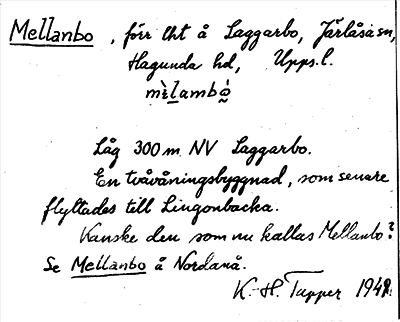 Mellanbo, förr lht å Laggarbo, Järlåsa sn,
Hagunda hd, Upps. l.
mèlambó̰
Låg 300 m NV Laggarbo.
En tvåvåningsbyggnad, som senare
flyttades till Lingonbacka.
Kanske den som nu kallas Mellanbo?
Se Mellanbo å Nordanå.
K.-H. Tapper 1941.